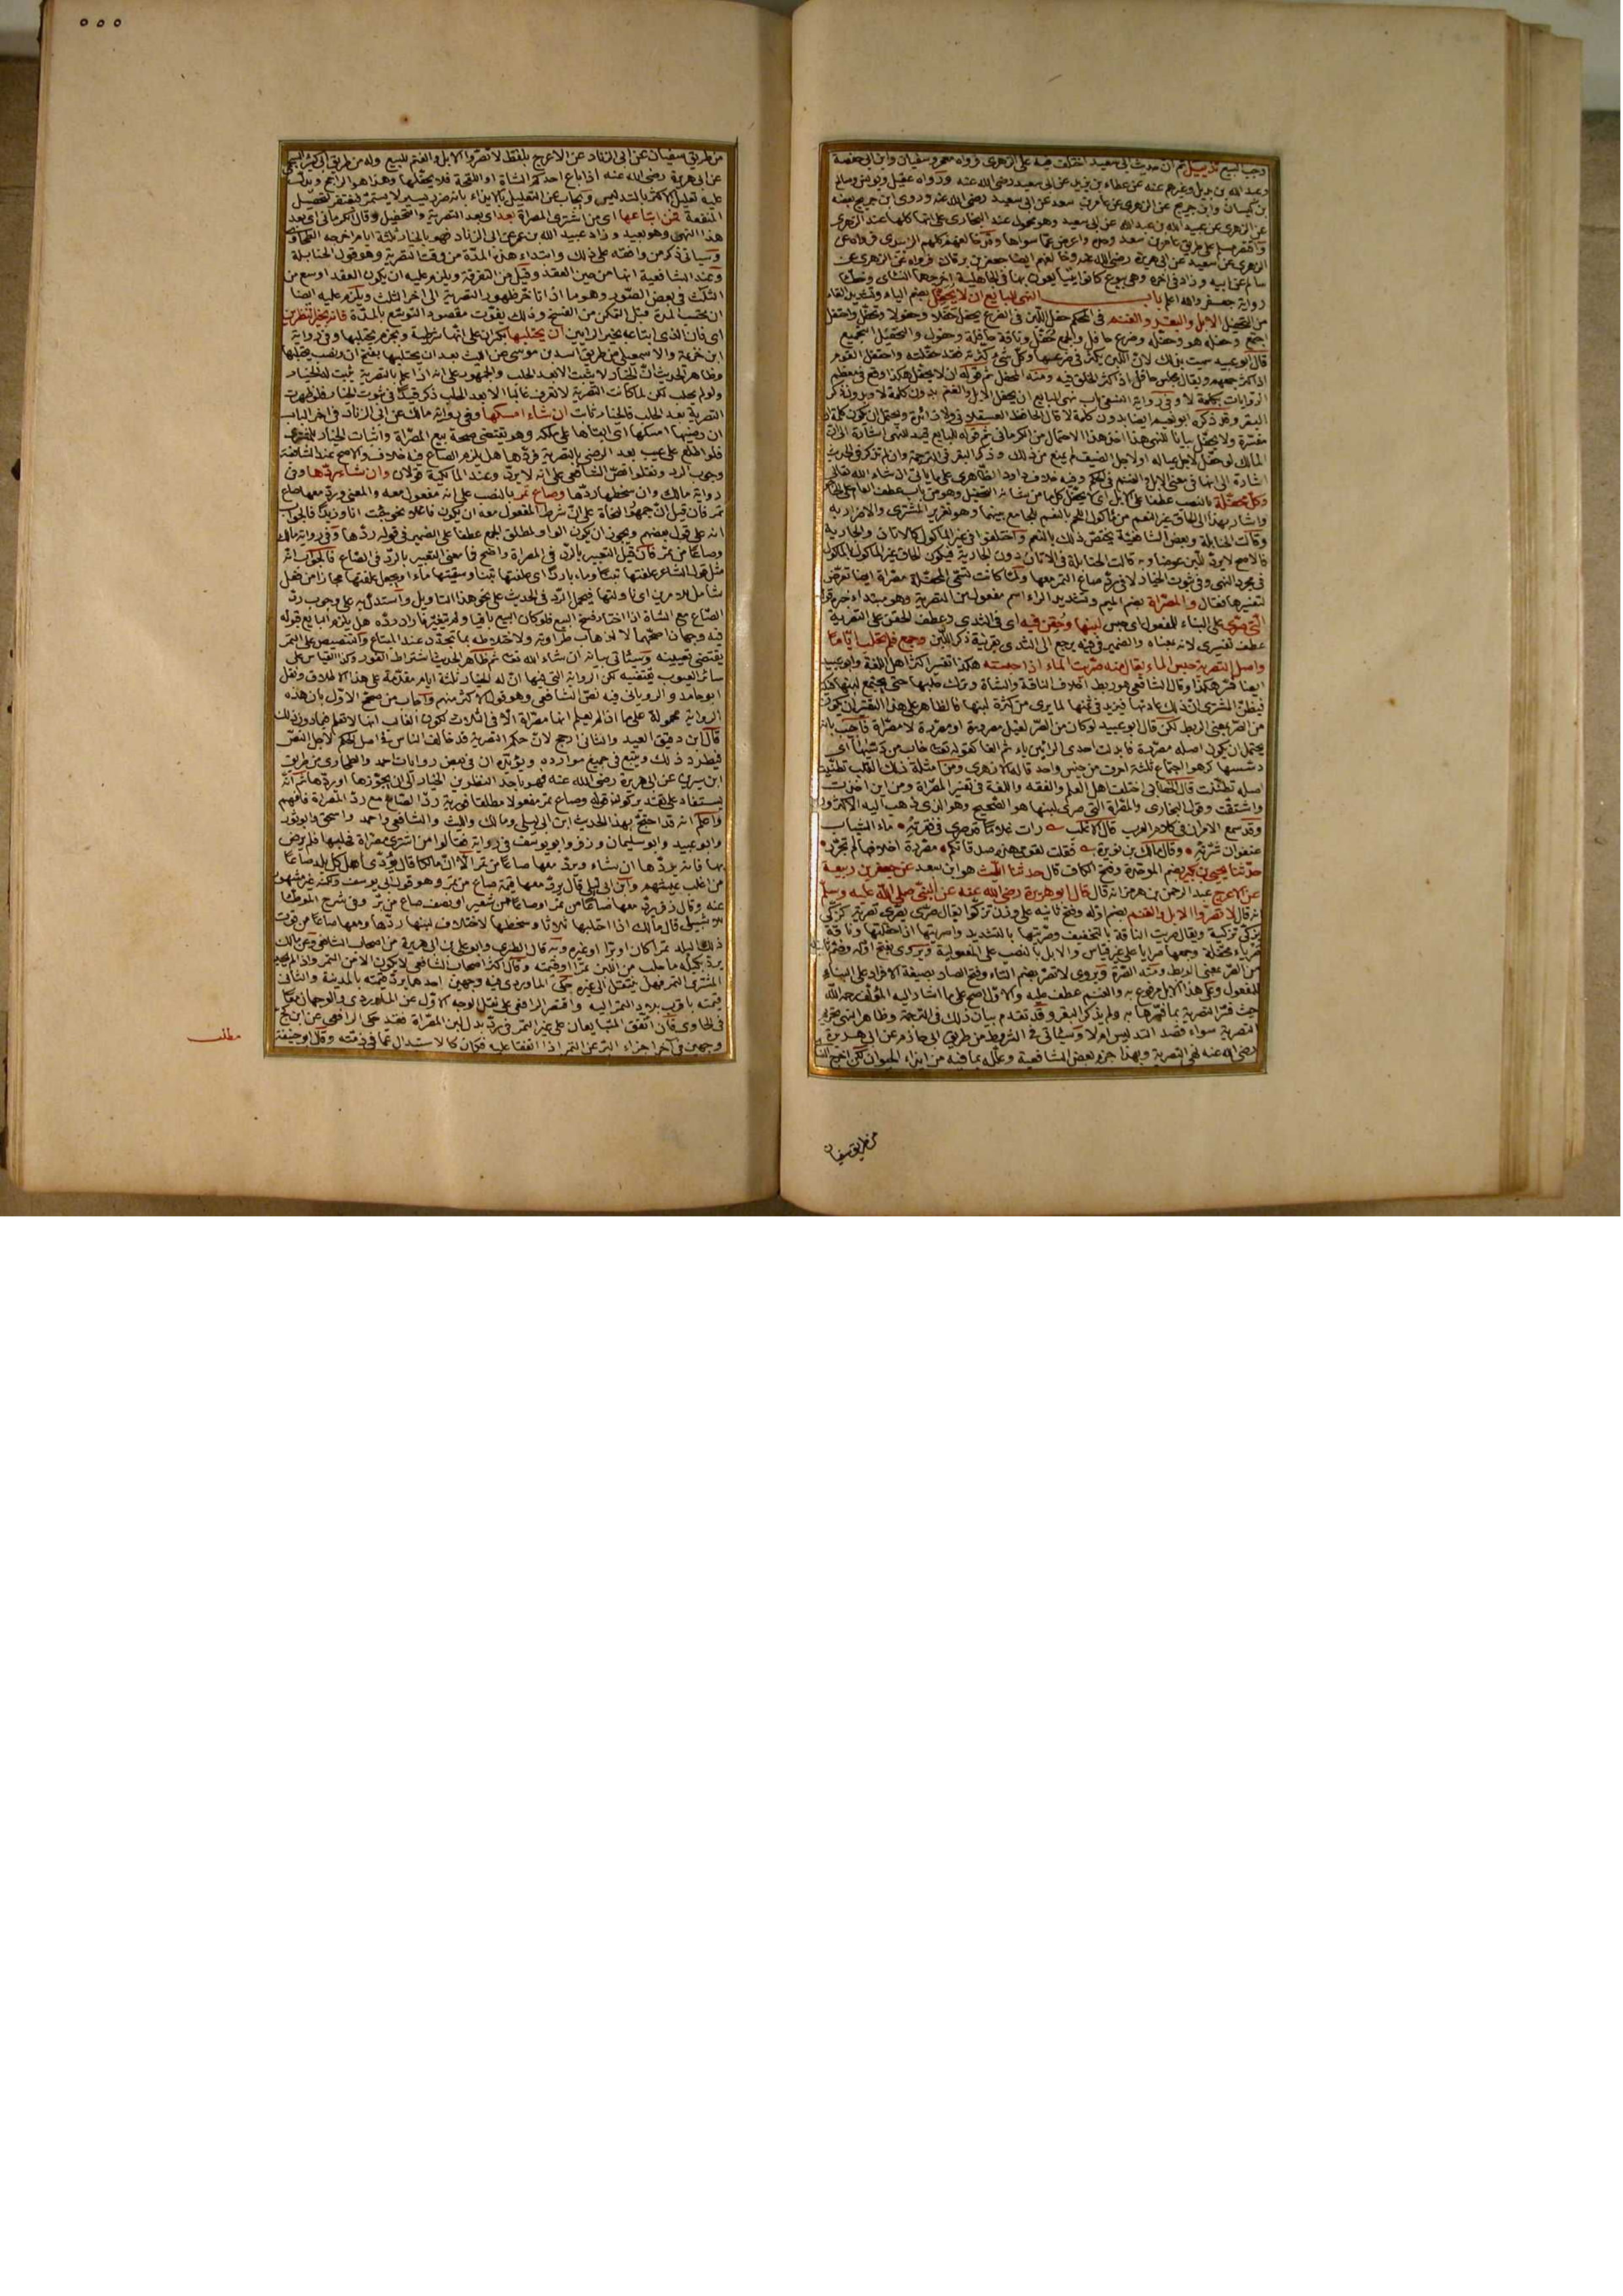 وجب البيع تذييل ثم ان حديث ابي سعيد اختلف فيه على الزهري فرواه معمر وسفيان وابن ابي حفصة
وعبد الله بن بديل وغيرهم عنه عن عطاء بن يزيد عن ابي سعيد رضي الله عنه ورواه عقيل ويونس وصالح
بن كيسان وابن جريج عن الزهري عن عامر بن سعد عن ابي سعيد رضي الله عنه وروى ابن جريج بعضه
عن الزهري عن عبيد الله بن عبد الله عن ابي سعيد وهو محمول عند البخاري على انها كلها عند الزهري
واقتصر مسلم على طريق عامر بن سعد وحده واعرض عما سواها وقد خالفهم كلهم الزبيدي فرواه عن
الزهري عن سعيد عن ابي هريرة رضي الله عنه وخالفهم ايضا جعفر بن برقان فرواه عن الزهري عن
سالم عن ابيه وزاد في آخره وهي بيوع كانوا يتبايعون بها في الجاهلية اخرجهما النسائي وخطأ
رواية جعفر والله اعلم باب النهي للبايع ان لا يحفل بضم الياء وتشديد الفاء
من التحفيل الابل والبقر والغنم في المحكم حفل اللبن في الضرع يحفل حفلا وحفولا وتحفل واحتفل
اجتمع وحفله هو وحفله وضرع حافل والجمع حفل وناقة حافلة وحفول والتحفيل التجميع
قال ابو عبيد سميت بذلك لان اللبن يكثر في ضرعها وكل شيء كثرته فقد حفلته واحتفل القوم
اذا كثر جمعهم ويقال مجلس حافل اذا كثر الخلق فيه ومنه المحفل ثم قوله ان لا يحفل هكذا وقع في معظم
الروايات بكلمة لا وفي رواية النسفي باب نهي البايع ان يحفل الابل والغنم بدون كلمة لا وبدون ذكر
البقر وقد ذكره ابو نعيم ايضا بدون كلمة لا قال الحافظ العسقلاني ولا زائدة ويحتمل ان يكون كلمة ان
مفسرة ولا يحفل بيانا للنهي هذا اخذ هذا الاحتمال من الكرماني ثم قوله للبايع قيد للنهي اشارة الى ان
المالك لو حفل لاجل عياله او لاجل الضيف لم يمنع من ذلك وذكر البقر في الترجمة وان لم تذكر في الحديث
اشارة الى انها في معنى الابل والغنم في الحكم وفيه خلاف داود الظاهري على ما يأتي ان شاء الله تعالى
وكل محفلة بالنصب عطفا على الابل اي لا يحفل كل ما من شأنه التحفيل وهو من باب عطف العام على الخاص
واشار بهذا الى الحاق غير النعم من مأكول اللحم بالنعم للجامع بينهما وهو تغرير المشتري والاضرار به
وقالت الحنابلة وبعض الشافعية يختص ذلك بالنعم واختلفوا في غير المأكول كالاتان والجارية
فالاصح لا يرد للبن عوضا وبه قالت الحنابلة في الاتان دون الجارية فيكون الحاق غير المأكول بالمأكول
في مجرد النهي وفي ثبوت الخيار لا في رد صاع التمر معها ولما كانت تسمى المحفلة مصراة ايضا تعرض
لتفسيرها فقال والمصراة بضم الميم وتشديد الراء اسم مفعول من التصرية وهو مبتدا خبره قوله
التي صري على البناء للمفعول اي حبس لبنها وحقن فيه اي في الثدي وعطف الحقن على التصرية
عطف تفسيري لانه بمعناه والضمير في فيه يرجع الى الثدي بقرينة ذكر اللبن وجمع فلم يحلب اياما
واصل التصرية حبس الماء يقال منه صريت الماء اذا حبسته هكذا تفسير اكثر اهل اللغة وابو عبيد
ايضا فسر هكذا وقال الشافعي هو ربط اخلاف الناقة والشاة وترك حلبها حتى يجتمع لبنها فيكثر
فيظن المشتري ان ذلك عادتها فيزيد في ثمنها لما يرى من كثرة لبنها فالظاهر على هذا التفسير ان يكون
من الصر بمعنى الربط لكن قال ابو عبيد لو كان من الصر لقيل مصرورة او مصررة لا مصراة فاجيب بانه
يحتمل ان يكون اصله مصررة فابدلت احدى الرائين ياء ثم الفا كقوله تعالى خاب من دسيها اي
دسسها كرهوا اجتماع ثلثة احرف من جنس واحد قاله الازهري ومن امثلة ذلك القلب تظنيت
اصله تظننت قال الخطابي اختلف اهل العلم والفقه واللغة في تفسير المصراة ومن اين اخذت
واشتقت وقول البخاري والمصراة التي صري لبنها هو الصحيح وهو الذي ذهب اليه الاكثرون
وقد سمع الامران في كلام العرب قال الاغلب رأت غلاما قد صرى في فقرته ماء الشباب
عنفوان شرته وقال مالك بن نويرة فقلت لقومي هذه صدقاتكم مصررة اخلافها لم تجرد
حدثنا يحيى بن بكير بضم الموحدة وفتح الكاف قال حدثنا الليث هو ابن سعد عن جعفر بن ربيعة
عن الاعرج عبد الرحمن بن هرمز انه قال قال ابو هريرة رضي الله عنه عن النبي صلى الله عليه وسلم
انه قال لا تصروا الابل والغنم بضم اوله وفتح ثانيه على وزن تزكوا يقال صرى يصري تصرية كزكى
يزكي تزكية ويقال صريت الناقة بالتخفيف وصريتها بالتشديد واصريتها اذا حفلتها وناقة
صرياء محفلة وجمعها صرايا على غير قياس والابل بالنصب على المفعولية ويروى بفتح اوله وضم ثانيه
من الصر بمعنى الربط ومنه الصرة ويروى لا تصر بضم التاء وفتح الصاد بصيغة الافراد على البناء
للمفعول وعلى هذا الابل مرفوع به والغنم عطف عليه والاول اصح على ما اشار اليه المؤلف رحمه الله
حيث فسر التصرية بما فسرها به ولم يذكر البقر وقد تقدم بيان ذلك في الترجمة وظاهر النهي تحريم
التصرية سواء قصد التدليس ام لا وسيأتي في الشروط من طريق ابي حازم عن ابي هريرة
رضي الله عنه نهى عن التصرية وبهذا جزم بعض الشافعية وعلله بما فيه من ايذاء الحيوان لكن اخرج النسائي
من طريق سفيان
من طريق سفيان عن ابي الزناد عن الاعرج بلفظ لا تصروا الابل والغنم للبيع وله من طريق ابي كثير السحيمي
عن ابي هريرة رضي الله عنه اذا باع احدكم الشاة او اللقحة فلا يحفلها وهذا هو الراجح ويدل
عليه تعليل الاكثر بالتدليس ويجاب عن التعليل بالايذاء بانه ضرر يسير لا يستمر فيغتفر لتحصيل
المنفعة فمن ابتاعها اي من اشترى المصراة بعد اي بعد التصرية والتحفيل وقال الكرماني اي بعد
هذا النهي وهو بعيد وزاد عبيد الله بن عمر عن ابي الزناد فهو بالخيار ثلثة ايام اخرجه الطحاوي
وسيأتي ذكر من وافقه على ذلك وابتداء هذه المدة من وقت التصرية وهو قول الحنابلة
وعند الشافعية انها من حين العقد وقيل من التفرقة ويلزم عليه ان يكون العقد اوسع من
الثلث في بعض الصور وهو ما اذا تأخر ظهور التصرية الى آخر الثلث ويلزم عليه ايضا
ان تحسب المدة قبل التمكن من الفسخ وذلك يفوت مقصود التوسع بالمدة فانه بخير النظرين
اي فان الذي ابتاعه بخير الرأيين ان يحتلبها بكسر ان على انها شرطية وبجزم يحتلبها وفي رواية
ابن خزيمة والاسمعيلي من طريق اسد بن موسى عن الليث بعد ان يحتلبها بفتح ان ونصب يحتلبها
وظاهر الحديث ان الخيار لا يثبت الا بعد الحلب والجمهور على انه اذا علم بالتصرية ثبت له الخيار
ولو لم يحلب لكن لما كانت التصرية لا تعرف غالبا الا بعد الحلب ذكر قيدا في ثبوت الخيار فلو ظهرت
التصرية بعد الحلب فالخيار ثابت ان شاء امسكها وفي رواية مالك عن ابي الزناد في آخر الباب
ان رضيها امسكها اي ابقاها على ملكه وهو يقتضي صحة بيع المصراة واثبات الخيار للمشتري
فلو اطلع على عيب بعد الرضي بالتصرية فردها هل يلزم الصاع فيه خلاف والاصح عند الشافعية
وجوب الرد ونقلوا نص الشافعي على انه لا يرد وعند المالكية قولان وان شاء ردها وفي
رواية مالك وان سخطها ردها وصاع تمر بالنصب على انه مفعول معه والمعنى ورد معها صاع
تمر فان قيل ان جمهور النحاة على ان شرط المفعول معه ان يكون فاعلا نحو جئت انا وزيدا فالجواب
انه على قول بعضهم ويجوز ان يكون الواو لمطلق الجمع عطفا على الضمير في قوله ردها وفي رواية مالك
وصاعا من تمر فان قيل التعبير بالرد في المصراة واضح فما معنى التعبير بالرد في الصاع فالجواب انه
مثل قول الشاعر علفتها تبنا وماء باردا اي علفتها تبنا وسقيتها ماء او يجعل علفتها مجازا من فعل
شامل للامرين اي ناولتها فيحمل الرد في الحديث على نحو هذا التأويل واستدل به على وجوب رد
الصاع مع الشاة اذا اختار فسخ البيع فلو كان البيع باقيا ولم يتغير فاراد رده هل يلزم البايع قبوله
فيه وجهان اصحهما لا لذهاب طراوته ولاختلاطه بما تجدد عند المبتاع والتنصيص على التمر
يقتضي تعيينه وسيأتي بيانه ان شاء الله تعالى ثم ظاهر الحديث اشتراط الفور وكذا القياس على
سائر العيوب يقتضيه لكن الرواية التي فيها ان له الخيار ثلثة ايام مقدمة على هذا الاطلاق ونقل
ابو حامد والروياني فيه نص الشافعي وهو قول الاكثر منهم واجاب من صحح الاول بان هذه
الرواية محمولة على ما اذا لم يعلم انها مصراة الا في الثلاث لكون الغالب انها لا تعلم فيما دون ذلك
قال ابن دقيق العيد والثاني ارجح لان حكم التصرية قد خالف القياس في اصل الحكم لاجل النص
فيطرد ذلك ويتبع في جميع موارده ويؤيده ان في بعض روايات احمد والطحاوي من طريق
ابن سيرين عن ابي هريرة رضي الله عنه فهو باحد النظرين الخيار الى ان يحوزها او يردها ثم انه
يستفاد على تقدير كون قوله وصاع تمر مفعولا مطلقا فورية رد الصاع مع رد المصراة فافهم
واعلم انه قد احتج بهذا الحديث ابن ابي ليلى ومالك والليث والشافعي واحمد واسحق وابو ثور
وابو عبيد وابو سليمان وزفر وابو يوسف في رواية فقالوا من اشترى مصراة فحلبها فلم يرض
بها فانه يردها ان شاء ويرد معها صاعا من تمر الا ان مالكا قال يؤدي اهل كل بلد صاعا
من اغلب عيشهم وابن ابي ليلى قال يرد معها قيمة صاع من تمر وهو قول ابي يوسف ولكنه غير مشهور
عنه وقال زفر يرد معها صاعا من تمر او صاعا من شعير او نصف صاع من بر وفي شرح الموطأ
للاشبيلي قال مالك اذا احتلبها ثلاثا وسخطها لاختلاف لبنها ردها ومعها صاعا من قوت
ذلك البلد تمرا كان او برا او غيره وبه قال الطبري وابو علي بن ابي هريرة من اصحاب الشافعي وعن مالك
يرد مكيلة ما حلب من اللبن تمرا او قيمته وقال اكثر اصحاب الشافعي لا يكون الا من التمر واذا لم يجد
المشتري التمر فهل ينتقل الى غيره حكى الماوردي فيه وجهين احدهما يرد قيمته بالمدينة والثاني
قيمته باقرب بلاد التمر اليه واقتصر الرافعي على نقل الوجه الاول عن الماوردي والوجهان معا
في الحاوي فان اتفق المتبايعان على غير التمر في رد بدل لبن المصراة فقد حكى الرافعي عن ابن كج
وجهين في اجزاء البر عن التمر اذا اتفقا عليه فكان كالاستبدال عما في ذمته وقال ابو حنيفة
مطلب